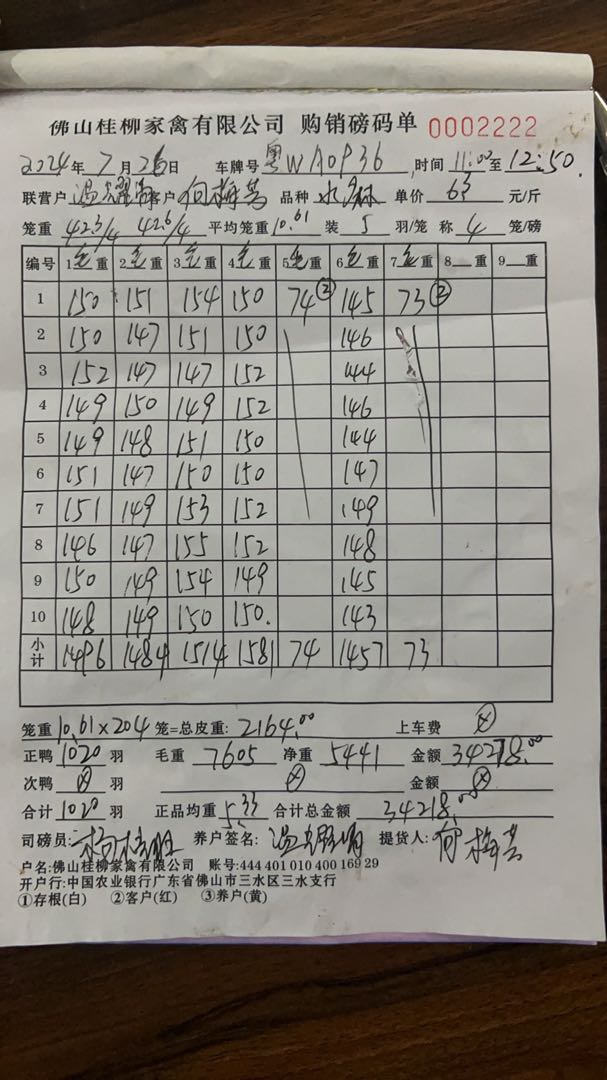 佛山桂柳家禽有限公司 购销磅码单 0002222
2024年 7月 26日 车牌号 粤WA0P36 时间 11:00 至 12:50
联营户 客户 何梅芳 品种 水麻 单价 63 元/斤
笼重 423/4 426/4 平均笼重 10.61 装 5 羽/笼 称 4 笼/磅
编号 1毛重 2毛重 3毛重 4毛重 5毛重 6毛重 7毛重 8__重 9__重
1 150 151 154 150 74② 145 73②
2 150 147 151 150 146
3 152 147 147 152 144
4 149 150 149 152 146
5 149 148 151 150 144
6 151 147 150 150 147
7 151 149 153 152 149
8 146 147 155 152 148
9 150 149 154 149 145
10 148 149 150 150. 143
小计 1496 1484 1514 1581 74 1457 73
笼重 10.61×204 笼=总皮重: 2164.00 上车费
正鸭 1020 羽 毛重 7605 净重 5441 金额 34278.00
次鸭 羽 金额
合计 1020 羽 正品均重 5.33 合计总金额 34218.00
司磅员: 养户签名: 提货人: 何梅芳
户名:佛山桂柳家禽有限公司 账号:444 401 010 400 169 29
开户行:中国农业银行广东省佛山市三水区三水支行
①存根(白) ②客户(红) ③养户(黄)